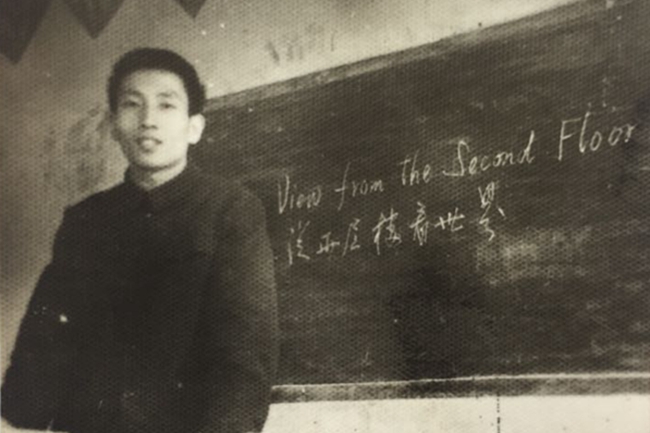 View from the Second Floor
從两层楼看世界